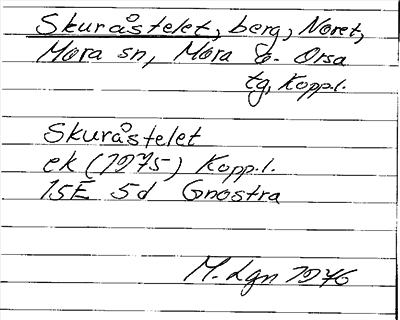 Skuråstelet, berg, Noret,
Mora sn, Mora o. Orsa
tg, Koppl.
Skuråstelet
ek (1975) Koppl.
15E 5d Gnostra
M. Lgn 1976